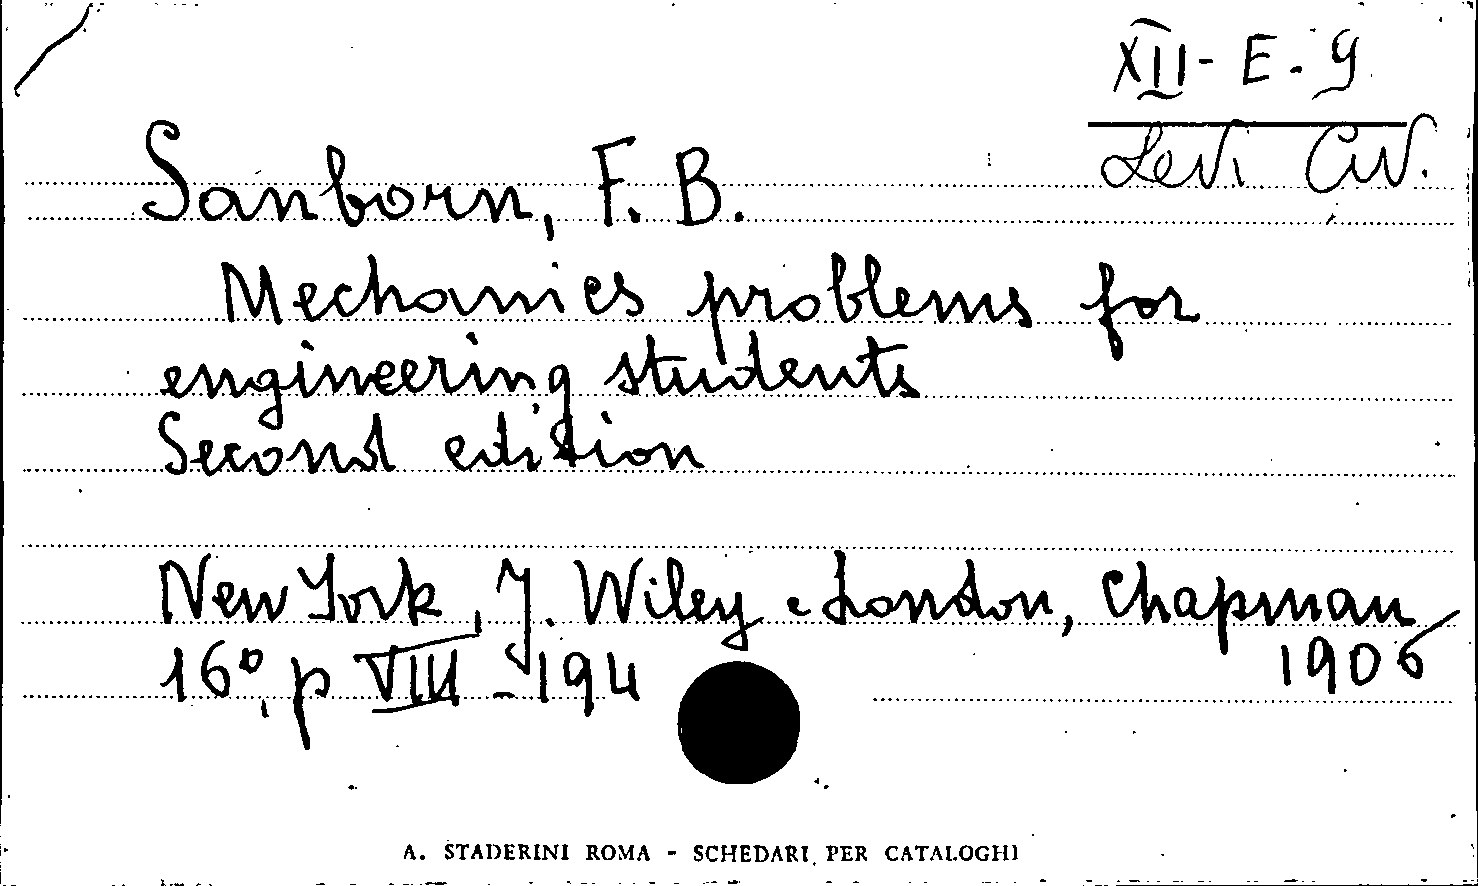 XII - E - 9
Levi Civ.
Sanborn, F. B.
Mechanics problems for
engineering students
Second edition
New York, J. Wiley e London, Chapman
16°, p VIII - 194
1906
A. STADERINI ROMA - SCHEDARI PER CATALOGHI